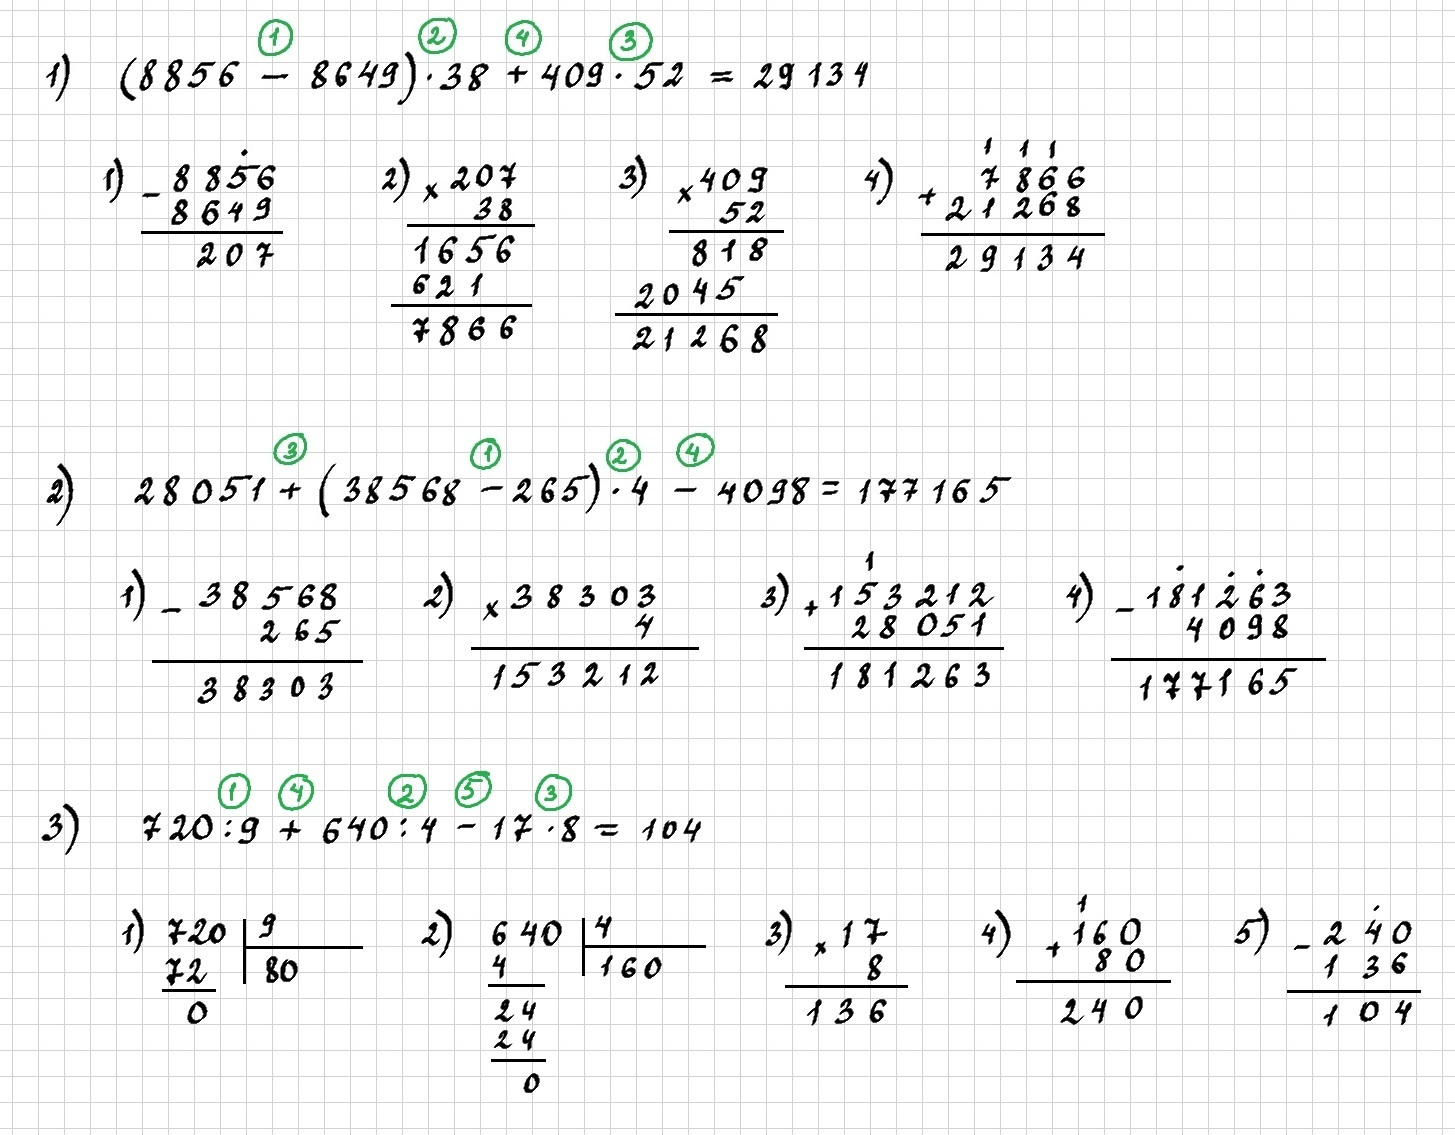 ① ② ④ ③
1) (8856 - 8649) · 38 + 409 · 52 = 29134
1) - 8856
8649
207
2) × 207
38
1656
621
7866
3) × 409
52
818
2045
21268
4) 1 1 1
+ 7866
21268
29134
③ ① ② ④
2) 28051 + (38568 - 265) · 4 - 4098 = 177165
1) - 38568
265
38303
2) × 38303
4
153212
3) 1
+ 153212
28051
181263
4) - 181263
4098
177165
① ④ ② ⑤ ③
3) 720 : 9 + 640 : 4 - 17 · 8 = 104
1) 720 | 9
72 | 80
0
2) 640 | 4
4 | 160
24
24
0
3) × 17
8
136
4) 1
+ 160
80
240
5) - 240
136
104